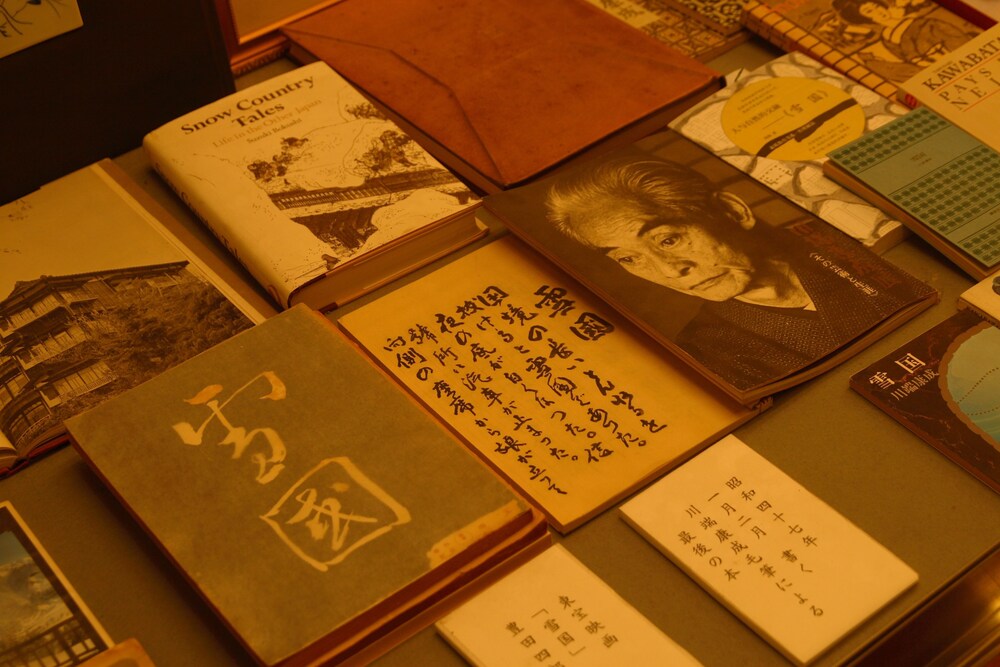 Snow Country
Tales
Life in the Other Japan
Suzuki Bokushi
KAWABAT
PAYS
NE
雪國
国境の長いとんねるを
抜けると雪国であった。
夜の底が白くなった。信
號所に汽車が止まった。
向側の座席から娘が立って
雪國
雪国
川端康成
昭和四十七年
一月二月 書く
川端康成毛筆による
最後の本
東宝映画
「雪国」
豊田四